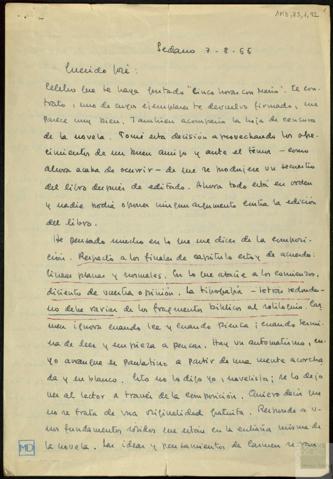 AMD, 73, 1, 92
Sedano 7-8-66
Querido José:
Celebro que te haya gustado "Cinco horas con Mario". El con-
trato, uno de cuyos ejemplares te devuelvo firmado, me
parece muy bien. También acompaño la hoja de censura
de la novela. Tomé esta decisión aprovechando los ofre-
cimientos de un buen amigo y ante el temor —como
ahora acaba de ocurrir— de que se produjera un secuestro
del libro después de editado. Ahora todo está en orden
y nadie podrá oponer ningún argumento contra la edición
del libro.
He pensado mucho en lo que me dices de la composi-
ción. Respecto a los finales de capítulo estoy de acuerdo:
líneas planas y normales. En lo que atañe a los comienzos,
disiento de vuestra opinión. La tipografía —letra redonda—
no debe variar de los fragmentos bíblicos al soliloquio. Car-
men ignora cuando lee y cuando piensa; cuando termi-
na de leer y empieza a pensar. Hay un automatismo, cu-
yo avance es paulatino a partir de una mente acorcha-
da y en blanco. Esto no lo digo yo, novelista; se lo dejo
ver al lector a través de la composición. Quiero decir que
no se trata de una originalidad gratuita. Responde a
unos fundamentos sólidos que están en la entraña misma de
la novela. Las ideas y pensamientos de Carmen se
MD